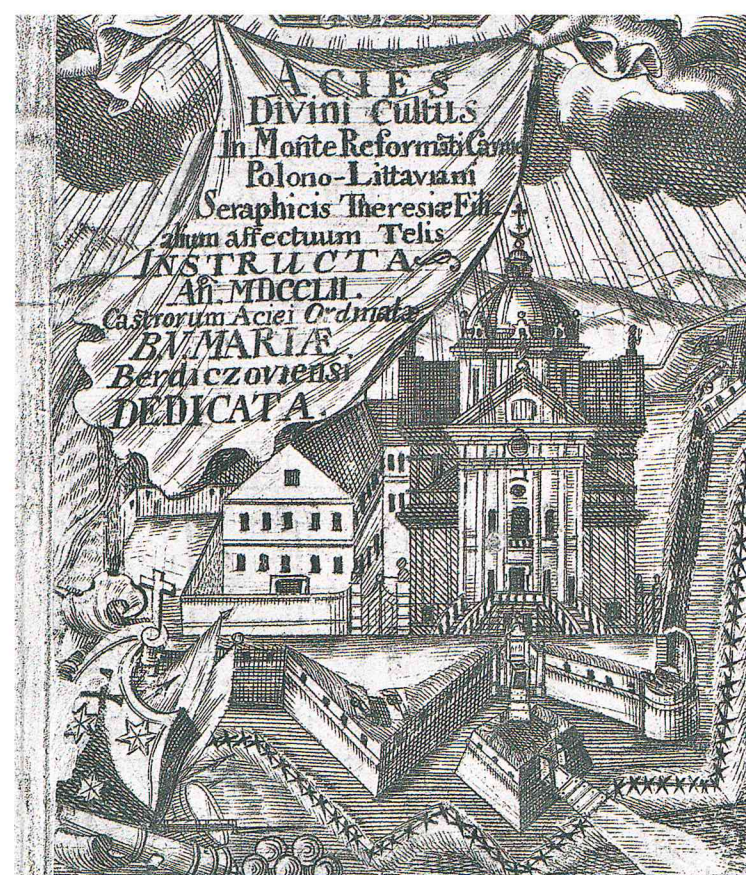 ACIES
Divini Cultus
In Monte Reformati Carme
Polono-Littaviani
Seraphicis Theresiæ Fili-
alium affectuum Telis
INSTRUCTA
Añ. MDCCLII.
Castrorum Aciei Ordinatæ
B.V. MARIÆ
Berdiczoviensi
DEDICATA.